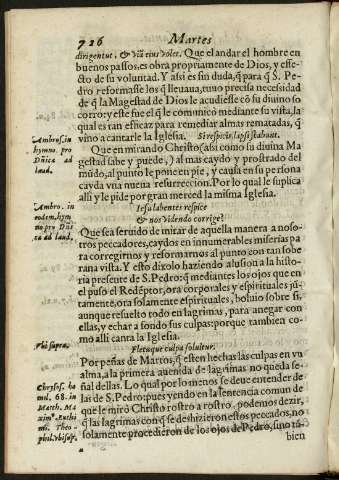 726 Martes
dirigentur, & viã eius volet. Que el andar el hombre en
buenos passos, es obra propriamente de Dios, y efe-
cto de su voluntad. Y assi es sin duda, q̃ para q̃ S. Pe-
dro reformasse los q̃ lleuaua, tuuo precisa necessidad
de q̃ la Magestad de Dios le acudiesse cõ su diuino so
corro: y este fue el q̃ le comunicó mediante su vista, la
qual es tan eficaz para remediar almas rematadas, q̃
vino a cantarle la Iglesia. Si respicis, lapsi stabunt.
Ambros. in
hymno. pro
Dñica ad
laud.
Que en mirando Christo (assi como su diuina Ma
gestad sabe y puede,) al mas caydo y prostrado del
mũdo, al punto le pone en pie, y causa en su persona
cayda vna nueua resurreccion. Por lo qual le suplica
alli y le pide por gran merced la misma Iglesia.
Iesu labentes respice
& nos videndo corrige:
Ambro. in
eodem, hym
no pro Dñi
ca ad laud.
Que sea seruido de mirar de aquella manera a noso-
tros peccadores, caydos en innumerables miserias pa
ra corregirnos y reformarnos al punto con tan sobe
rana vista. Y esto dixolo haziendo alusion a la histo-
ria presente de S. Pedro: q̃ mediantes los ojos que en
el puso el Redẽptor, ora corporales y espirituales jũ-
tamente, ora solamente espirituales, boluio sobre si,
aunque resuelto todo en lagrimas, para anegar con
ellas, y echar a fondo sus culpas: porque tambien co-
mo alli canta la Iglesia.
Vbi supra.
Fletuque culpa soluitur.
Por peñas de Martos, q̃ esten hechas las culpas en vn
alma, a la primera auenida de lagrimas no queda se-
ñal dellas. Lo qual por lo menos se deue entender de
las de S. Pedro: pues yendo en la sentencia comun de
que le miró Christo rostro a rostro, podemos dezir,
q̃ las lagrimas con q̃ se deshizieron estos peccados, no
solamente procedieron de los ojos de Pedro, sino tã-
bien
Chrysos. ho
mil. 68. in
Math.
Euthi
mi. Theo-
phil.